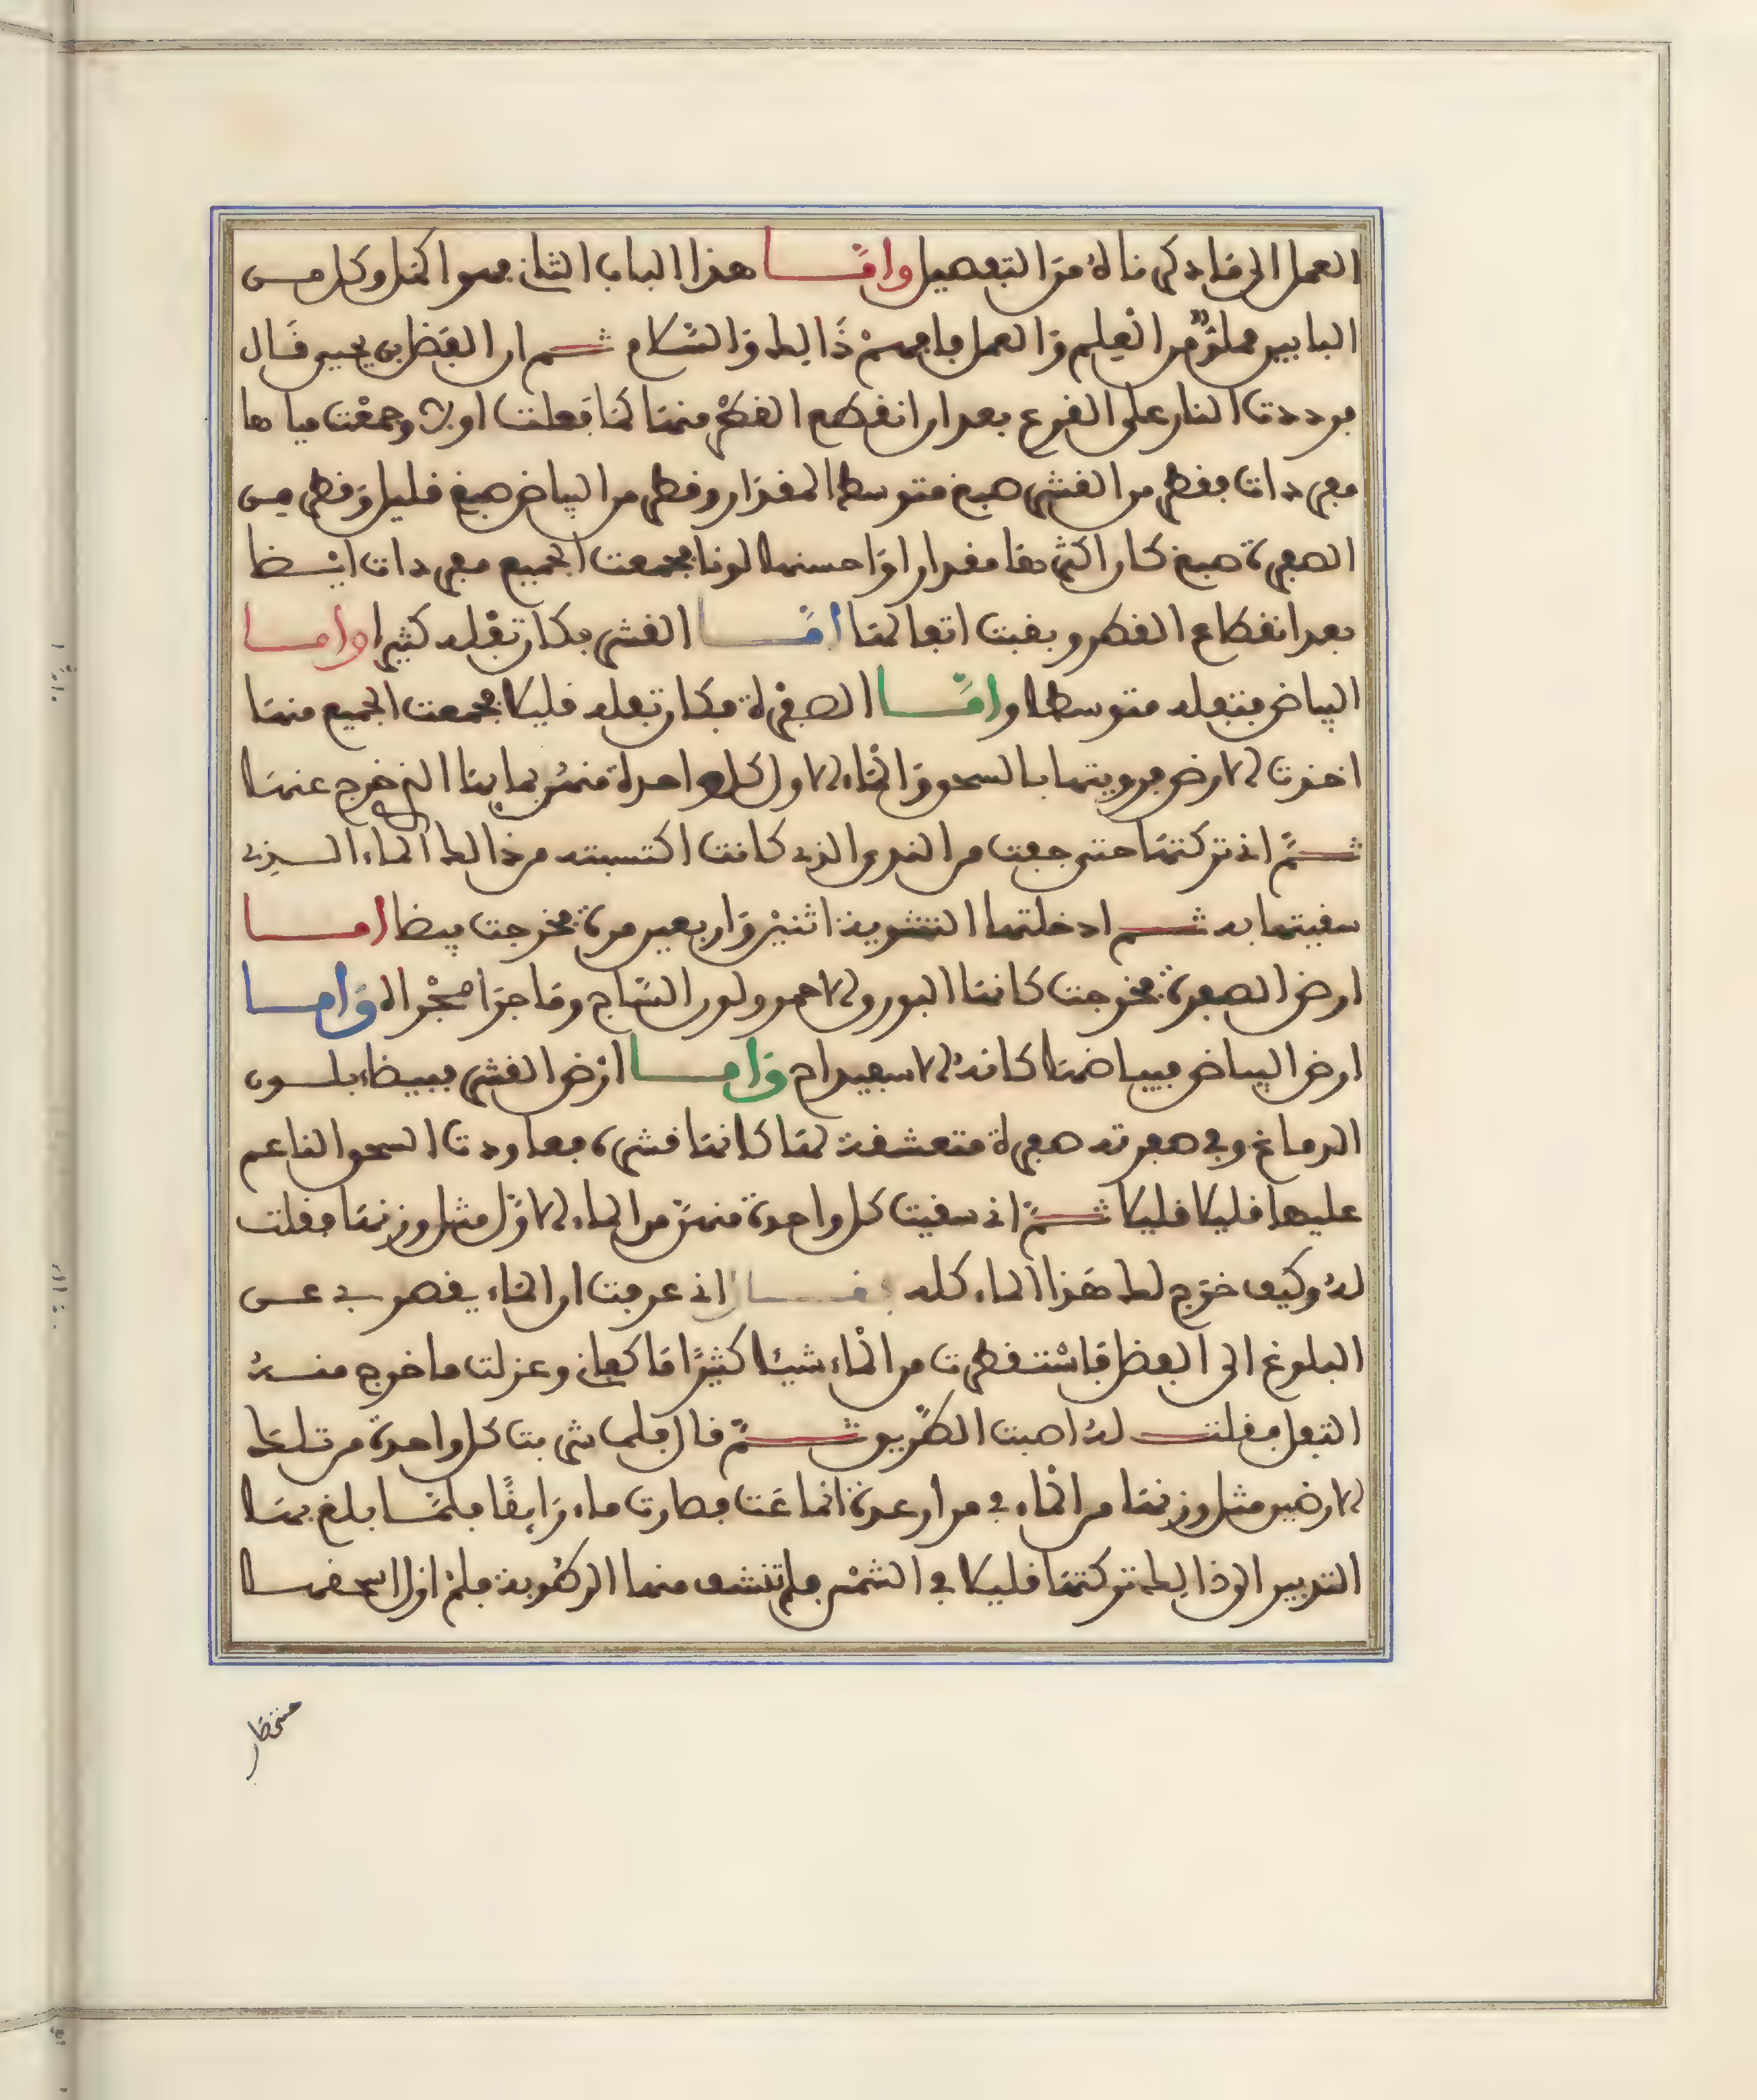 العمل الى ما ذكرناه من التفصيل واما هذا الباب الثاني فهو اكمل وكل من
البابين مملوّ من العلم والعمل فافهم ذالك والسّلام ثم ان الفضل بن يحيى قال
فرددت النار على القرع بعد ان انقطع القطر منها كما فعلت اولا وجمعت مياها
مفردات فقطر من القشر صبغ متوسط المقدار وقطر من البياض صبغ قليل وقطر من
الصفرة صبغ كان اكثرها مقدارا واحسنها لونا فجمعت الجميع مفردات ايضا
بعد انقطاع القطر وبقيت اثفالها امّا القشر فكان ثفله كثيرا واما
البياض فثفله متوسطا وامّا الصفرة فكان ثفله قليلا فجمعت الجميع منها
اخذت الارض فرويتها بالسحق والماء الاول كل واحدة منهن بمايها الذي خرج عنها
ثمّ اني تركتها حتى جفت من الندى الذي كانت اكتسبته من ذالك الماء الذي
سقيتها به ثم ادخلتها التشوية اثنين واربعين مرة فخرجت بيضا اما
ارض الصفرة فخرجت كانها البورق الاحمر ولون الساج وما جرا مجراه واما
ارض البياض فبياضها كانه الاسفيداج واما ارض القشر فبيضاء بلون
الدماغ وفي صفرته صفرة متعشقة لها كانها قشرة فعاودت السحق الناعم
عليها قليلا قليلا ثمّ اني سقيت كل واحدة منهنّ من الماء الاوّل مثل وزنها فقلت
له وكيف خرج لك هذا الماء كله فقال اني عرفت ان الماء يقصر بي عن
البلوغ الى الفضل فاستقطرت من الماء شيئا كثيرًا ما كفاني وعزلت ما خرج منه
الثفل فقلت له اصبت الطّريق ثمّ قال فلما شربت كل واحدة من تلك
الارضين مثل وزنها من الماء في مرار عدة انماعت فصارت ماء رايقًا فلمّا بلغ بها
التدبير الى ذالك تركتها قليلا في الشمس فلم تنشف منها الرطوبة فلم ازل اسحقها